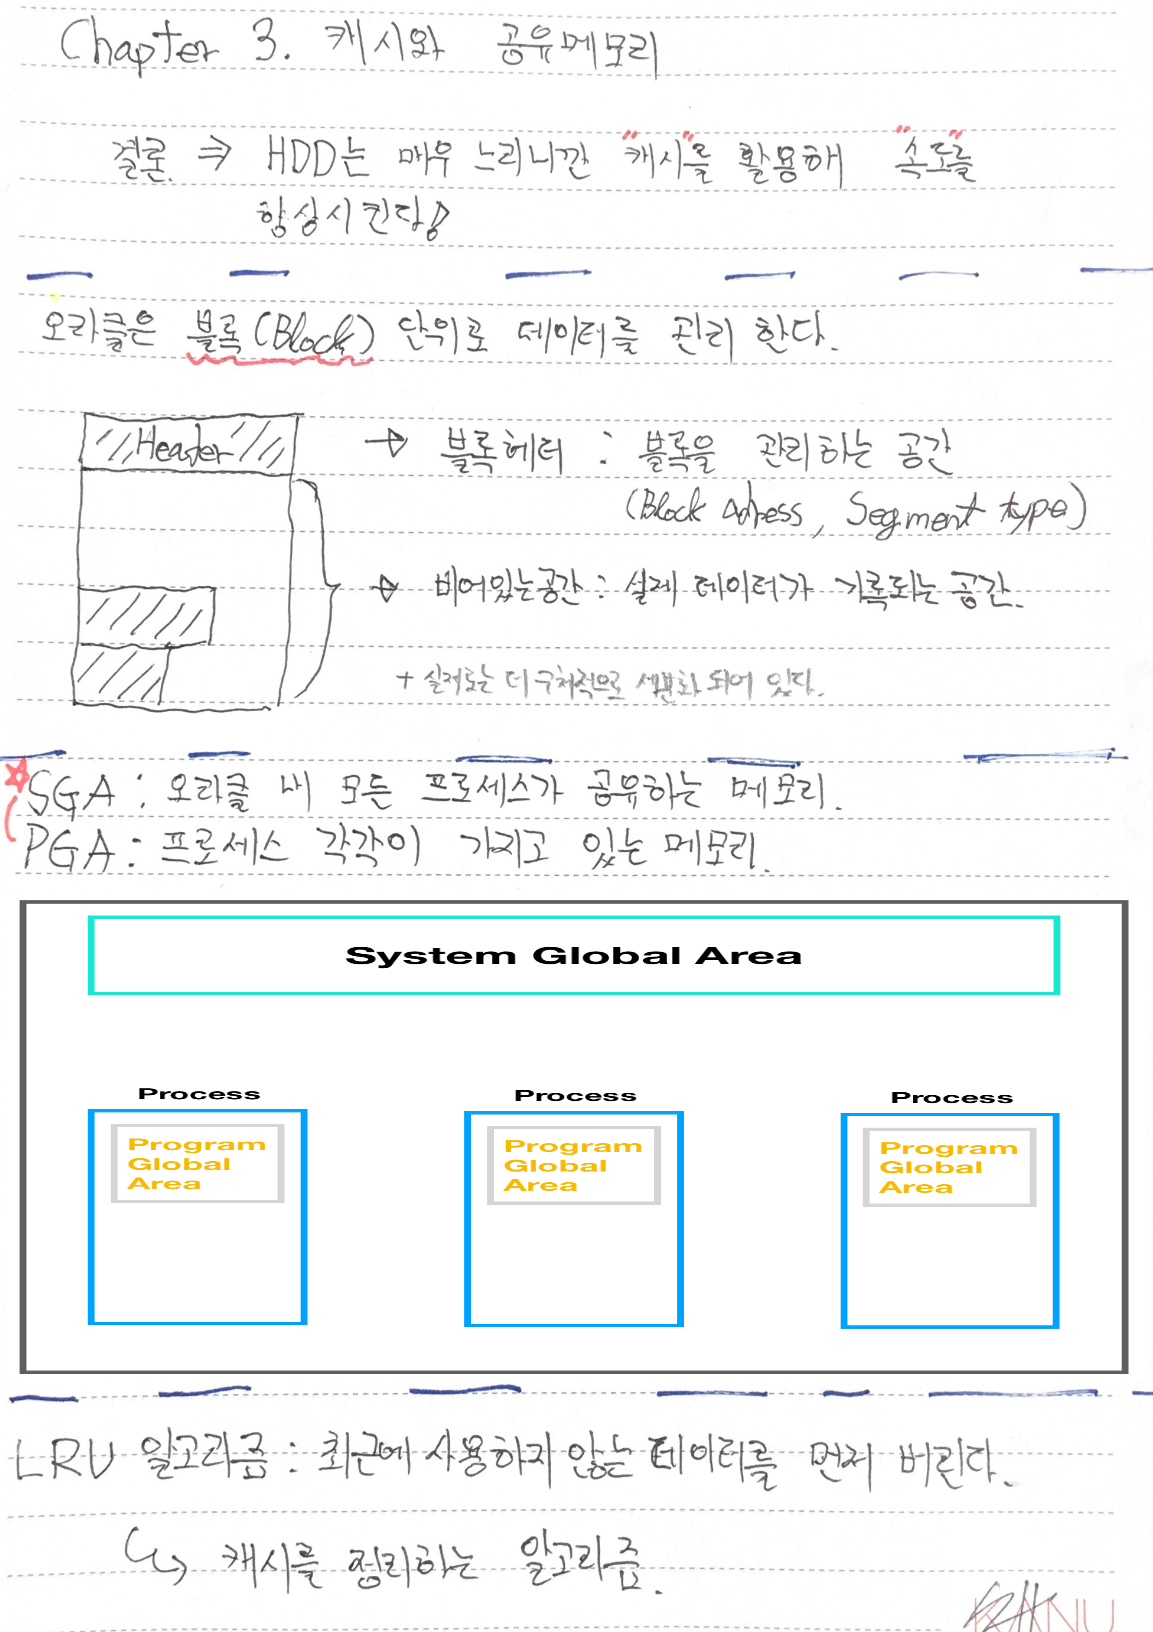 Chapter 3. 캐시와 공유메모리
결론 ⇒ HDD는 매우 느리니깐 "캐시"를 활용해 "속도"를
향상시킨다!
오라클은 블록(Block) 단위로 데이터를 관리 한다.
Header → 블록헤더 : 블록을 관리하는 공간
(Block Adress, Segment type)
→ 비어있는공간 : 실제 데이터가 기록되는 공간.
+ 실제로는 더 구체적으로 세분화 되어 있다.
☆ SGA : 오라클 내 모든 프로세스가 공유하는 메모리.
PGA : 프로세스 각각이 가지고 있는 메모리.
System Global Area
Process Process Process
Program Program Program
Global Global Global
Area Area Area
LRU 알고리즘 : 최근에 사용하지 않는 데이터를 먼저 버린다.
↳ 캐시를 정리하는 알고리즘.